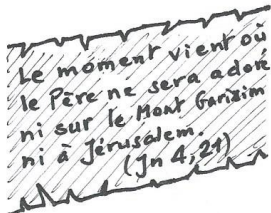 Le moment vient où
le Père ne sera adoré
ni sur le Mont Garizim
ni à Jérusalem.
(Jn 4,21)